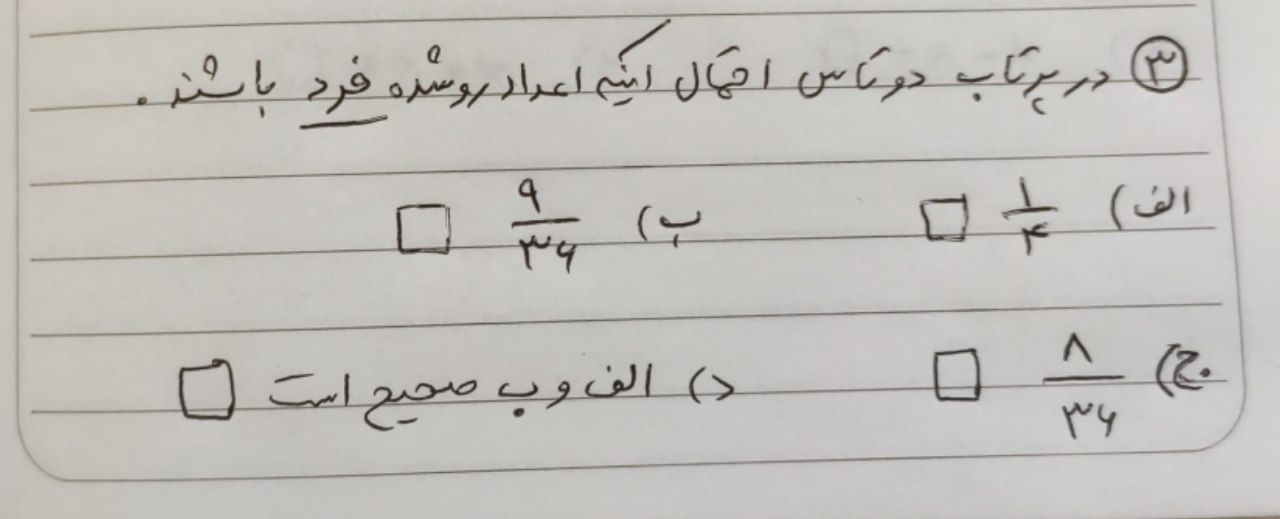 ۳) در پرتاب دو تاس احتمال اینکه اعداد رو شده فرد باشند.
الف) ۱/۴ □ ب) ۹/۳۶ □
ج) ۸/۳۶ □ د) الف و ب صحیح است □